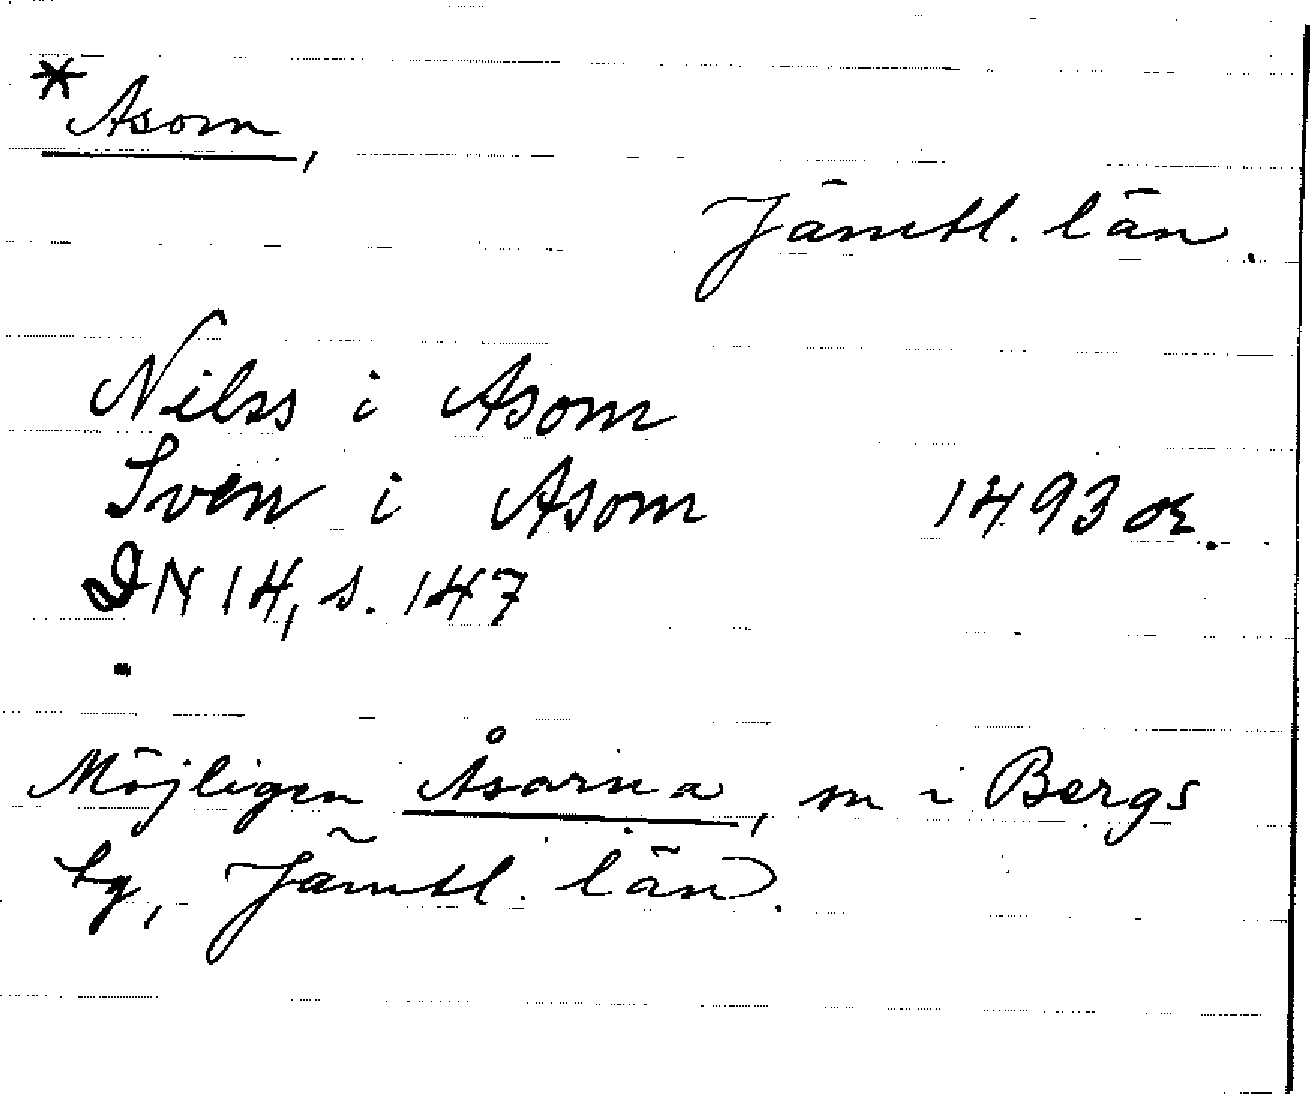 *Asom,
Jämtl. län.
Nilss i Asom
Sven i Asom 1493 or.
DN 14, s. 147
Möjligen Åsarna, sn i Bergs
tg, Jämtl. län.